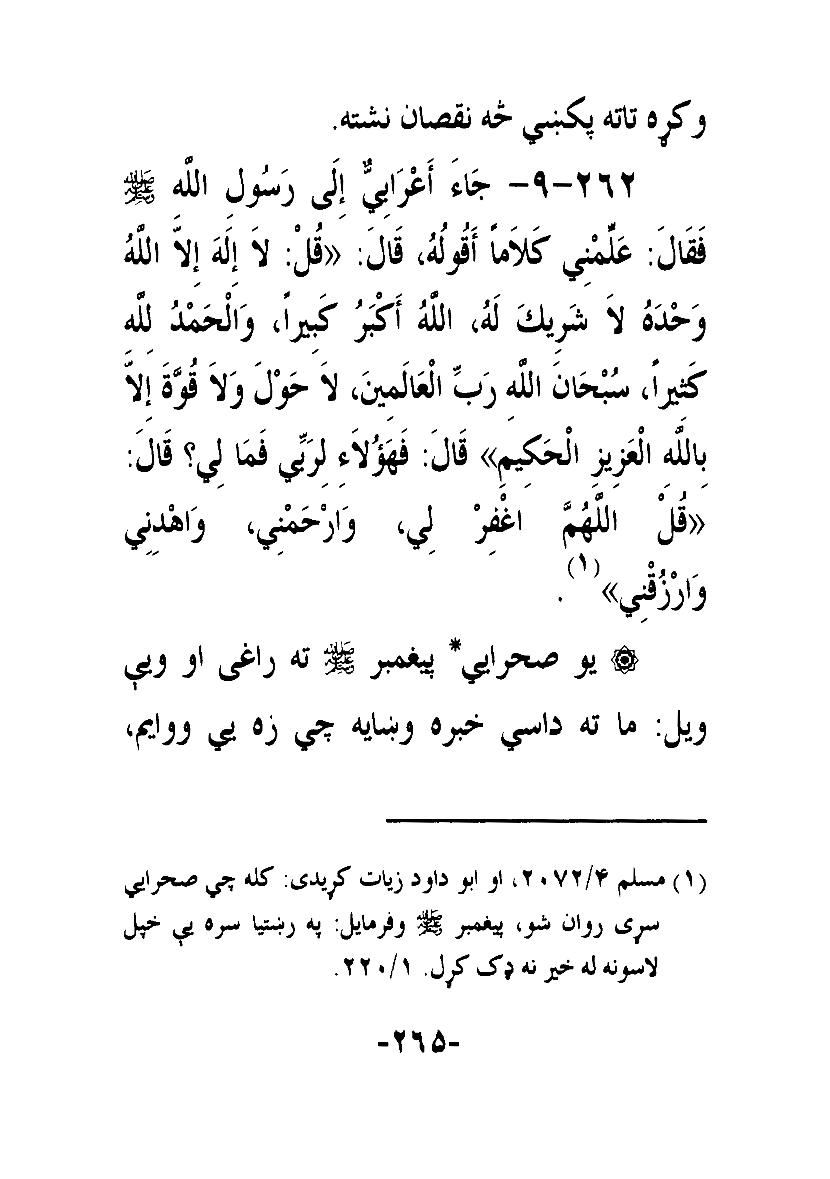 وکړه تاته پکښي څه نقصان نشته.
۲٦۲-۹- جَاءَ أَعْرَابِيٌّ إِلَى رَسُولِ اللَّهِ ﷺ
فَقَالَ: عَلِّمْنِي كَلاَماً أَقُولُهُ، قَالَ: «قُلْ: لاَ إِلَهَ إِلاَّ اللَّهُ
وَحْدَهُ لاَ شَرِيكَ لَهُ، اللَّهُ أَكْبَرُ كَبِيراً، وَالْحَمْدُ لِلَّهِ
كَثِيراً، سُبْحَانَ اللَّهِ رَبِّ الْعَالَمِينَ، لاَ حَوْلَ وَلاَ قُوَّةَ إِلاَّ
بِاللَّهِ الْعَزِيزِ الْحَكِيمِ» قَالَ: فَهَؤُلاَءِ لِرَبِّي فَمَا لِي؟ قَالَ:
«قُلْ اللَّهُمَّ اغْفِرْ لِي، وَارْحَمْنِي، وَاهْدِنِي
وَارْزُقْنِي»(۱).
۞ يو صحرايي* پيغمبر ﷺ ته راغی او ويې
ويل: ما ته داسي خبره وښايه چي زه يي ووايم،
(۱) مسلم ۲۰۷۲/۴، او ابو داود زيات کړيدی: کله چي صحرايي
سړی روان شو، پيغمبر ﷺ وفرمايل: په رښتيا سره يې خپل
لاسونه له خير نه ډک کړل. ۲۲۰/۱.
-۲٦۵-